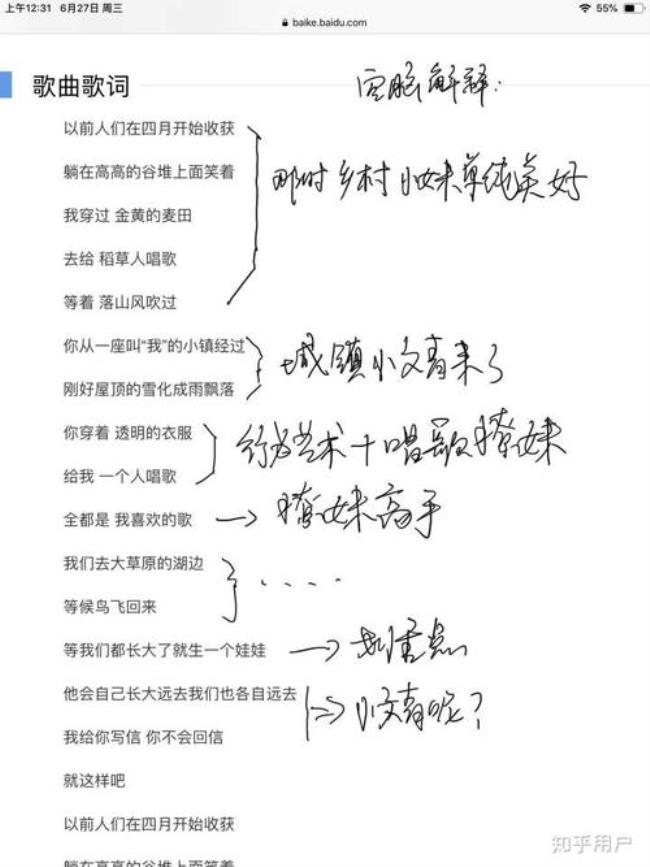 上午12:31 6月27日 周三
55%
baike.baidu.com
歌曲歌词
空脑解释:
以前人们在四月开始收获
躺在高高的谷堆上面笑着
那时乡村小妹单纯美好
我穿过 金黄的麦田
去给 稻草人唱歌
等着 落山风吹过
你从一座叫“我”的小镇经过
城镇小文青来了
刚好屋顶的雪化成雨飘落
你穿着 透明的衣服
行为艺术+唱歌撩妹
给我 一个人唱歌
全都是 我喜欢的歌
→ 撩妹高手
我们去大草原的湖边
....
等候鸟飞回来
等我们都长大了就生一个娃娃
→ 划重点
他会自己长大远去我们也各自远去
⇒ 小文青呢?
我给你写信 你不会回信
就这样吧
以前人们在四月开始收获
躺在高高的谷堆上面笑着
知乎用户